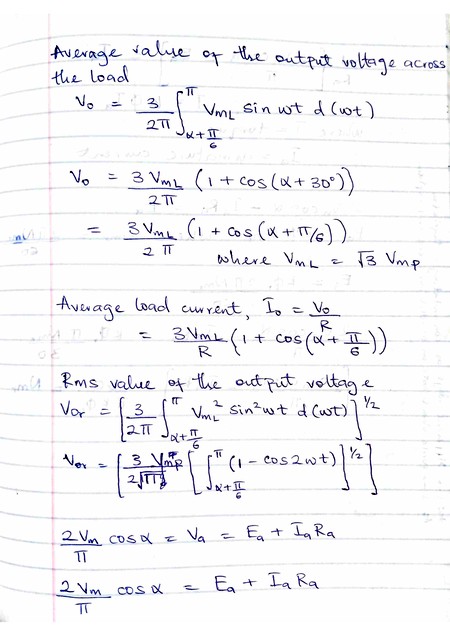 Average value of the output voltage across
the load
V₀ = 3/2π ∫_{α+π/6}^{π} V_{mL} sin wt d(wt)
V₀ = 3V_{mL}/2π (1 + cos(α+30°))
= 3V_{mL}/2π (1 + cos(α+π/6))
where V_{mL} = √3 V_{mp}
Average load current, I₀ = V₀/R
= 3V_{mL}/R (1 + cos(α + π/6))
Rms value of the output voltage
V_{or} = [3/2π ∫_{α+π/6}^{π} V_{mL}² sin²wt d(wt)]^{1/2}
V_{or} = [3 V_{mp}/2√π [∫_{α+π/6}^{π} (1 - cos2wt)]^{1/2}]
2V_m/π cosα = V_a = E_a + I_a R_a
2V_m/π cosα = E_a + I_a R_a